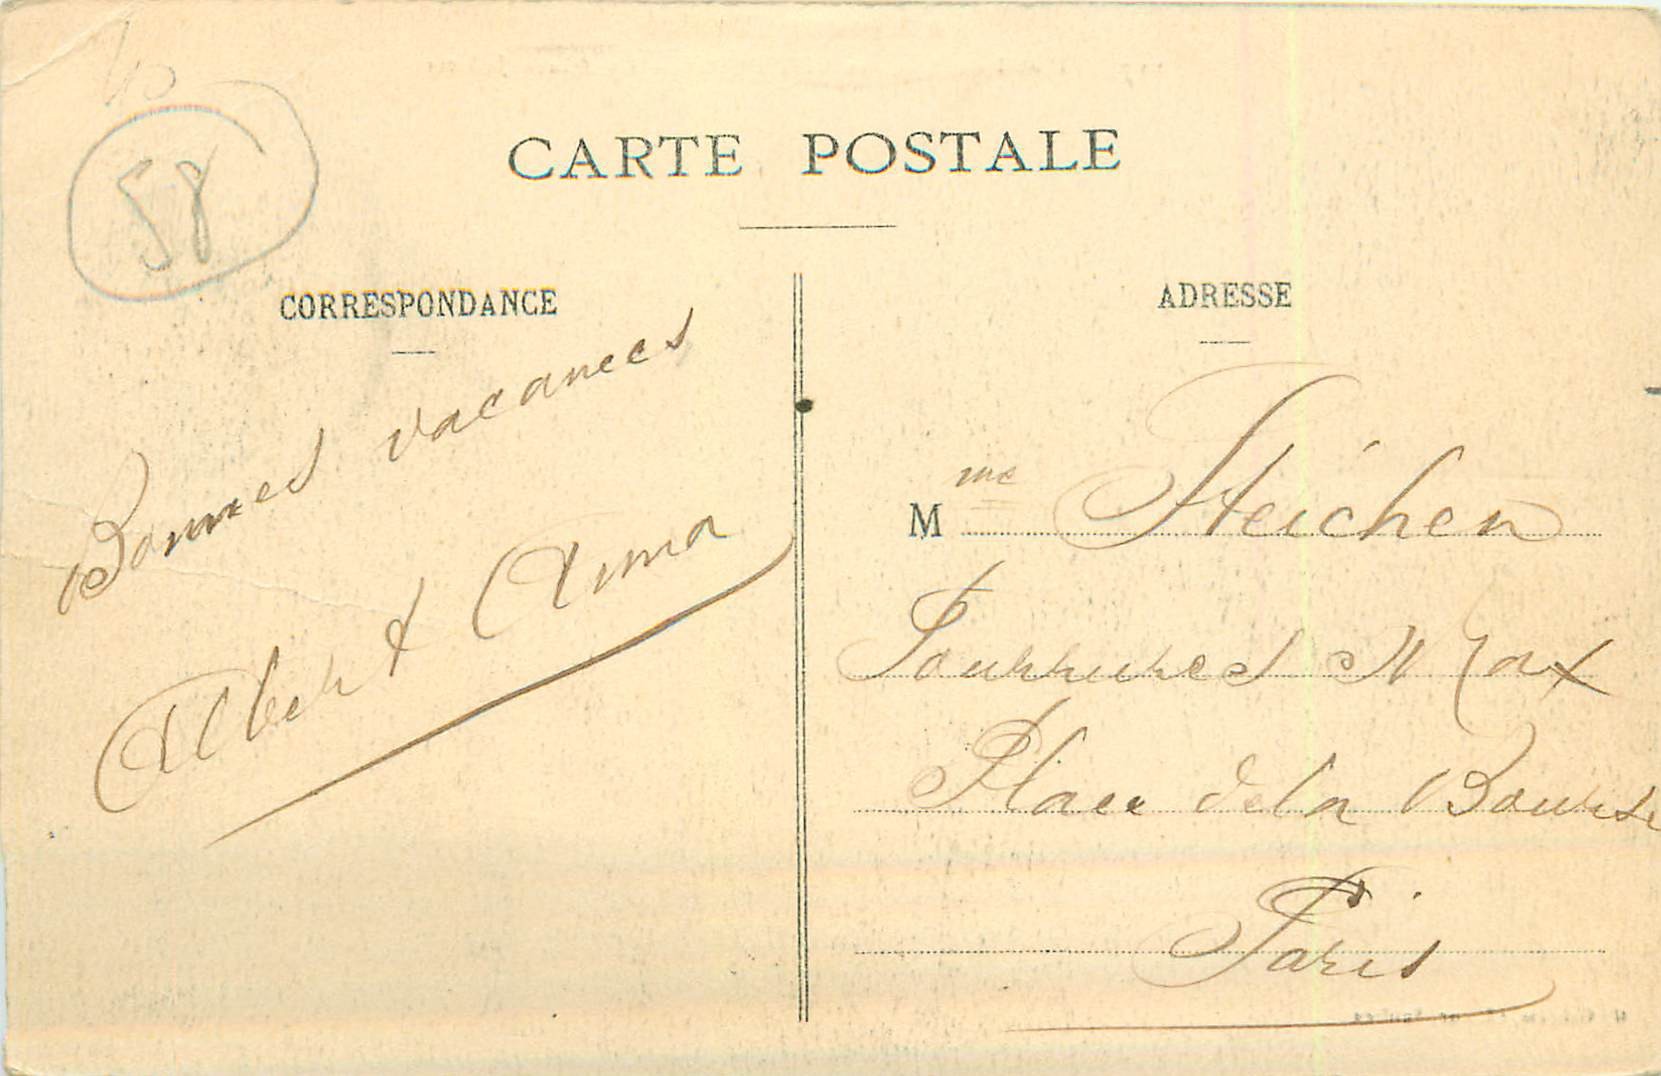 58
CARTE POSTALE
CORRESPONDANCE
Bonnes vacances
Albert & Anna
ADRESSE
Mme Steichen
Fourrures Max
Place de la Bourse
Paris